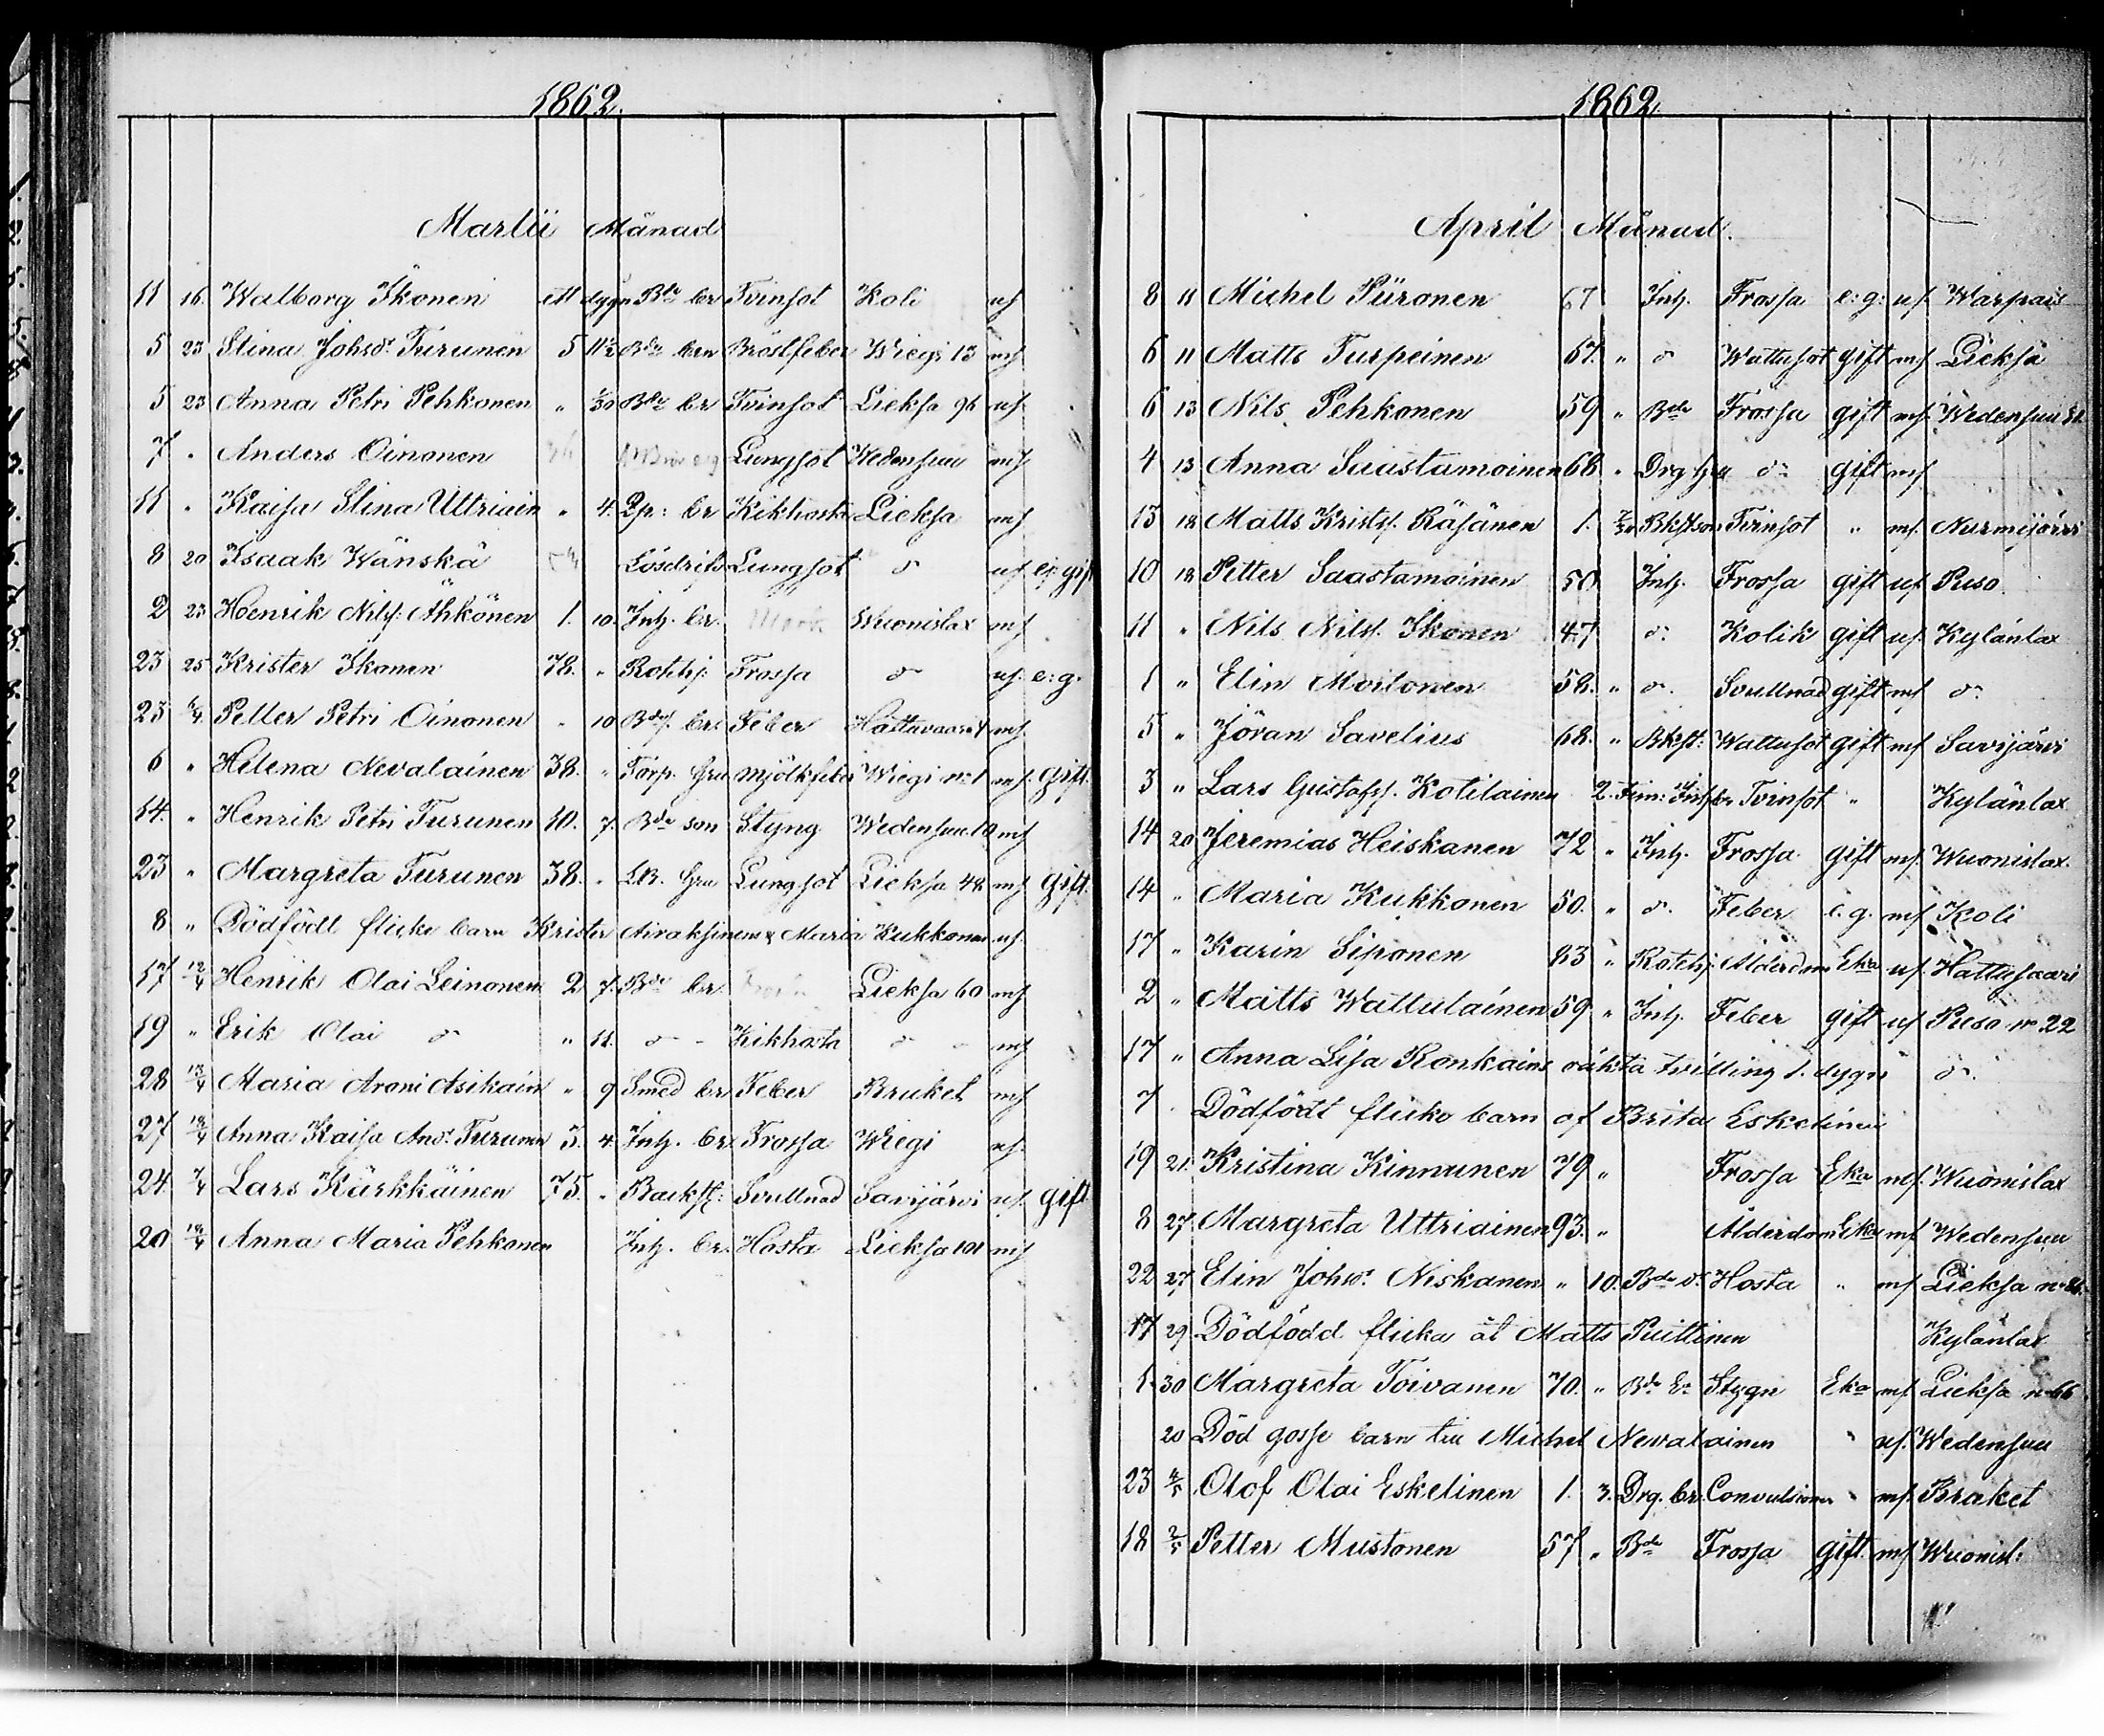 1862.
Martii Månad
11 16. Walborg Ikonen ett dygn Bde br Tvinsot Koli uf
5 23 Stina Johsdr Turunen 5 11½ Bde brn Bröstfeber Wiegi 13 mf
5 23 Anna Petri Pehkonen " 3/30 Bde br Tvinsot Lieksa 96 uf.
7 " Anders Oinonen Lungsot Wedensuu mf
11 " Kaisa Stina Uttriain " 4. Lp: br Kikhosta Lieksa mf
8 20 Isaak Wänskä Lösdrif. Lungsot d:o uf ej gift
2 23 Henrik Nilsf: Ahkönen 1. 10. Inh. br. Wuonislax mf.
23 25 Krister Ikonen 78. " Rotehj: Frossa d:o uf. e: g.
23 6/4 Petter Petri Oinonen " 10 Bdef. br. Feber Hattuvaara 4 mf
6 " Helena Nevalainen 38. " Torp. hru mjölkfeber Wiegi no 1 mf. gift.
14. " Henrik Petri Turunen 10. 7. Bde son Styng Wedensuu 10 mf
23 " Margreta Turunen 38. " LB. hru Lungsot Lieksa 48 mf gift.
8 " Dödfödt flicke barn Krister Airaksinens & Maria Kukkonen uf.
17 12/4 Henrik Olai Leinonen 2 7. Bde br. Lieksa 60 mf
19 " Erik Olai d:o " 11. d:o - Kikhosta d:o - mf
28 13/4 Maria Aroni Asikain " 9 Smed br Feber Bruket mf
27 18/4 Anna Kaisa Andr: Turunen 3. 4. Inh. br. Frossa Wiegi uf.
24. 7/4 Lars Kärkkäinen 75. " Backst: Svullnad Savijärvi uf. gift
20 18/4 Anna Maria Pehkonen Inh. br. Hosta Lieksa 101 mf
1862.
April Månad.
8 11 Michel Piironen 67 Inh. Frossa e: g: uf. Warpais
6 11 Matts Turpeinen 67. " d:o Wattusot gift mf. Lieksa
6 13 Nils Pehkonen 59 " Bde Frossa gift mf. Wedensuu
4 13 Anna Saastamoinen 68 " Drg hru d:o gift mf
13 18 Matts Kristf. Räsänen 1. Bkstson Tvinsot " mf. Nurmijärvi
10 18 Petter Saastamoinen 50 Inh. Frossa gift uf. Puso
11 " Nils Nilsf. Ikonen 47 d:o Kolik gift uf. Kylänlax
1 " Elin Moilonen 58. " d:o. Svullnad gift mf d:o
5 " Jöran Savelius 68. " Bkst: Wattusot gift mf Savijärvi
3 " Lars Gustafsf. Kotilainen 2. Tim: Inh br Tvinsot " Kylänlax
14 20 Jeremias Heiskanen 72 " Inh. Frossa gift mf. Wuonislax.
14 " Maria Kukkonen 50. " d:o. Feber e. g. mf Koli
17 " Karin Siponen 83 " Rotehj Ålderdom Eka uf. Hattusaari
2 " Matts Wattulainen 59 " Inh. Feber gift uf Puso no 22
17 " Anna Lisa Ronkains oäkta tvilling 1. dygn d:o.
7 Dödfödt flicke barn af Brita Eskelinen
19 21. Kristina Kinnunen 79 " Frossa Eka mf. Wuonislax
8 27 Margreta Uttriainen 93. " Ålderdom Eka mf Wedensuu
22 27 Elin Johsdr. Niskanen " 10. Bde d:r Hosta " mf Lieksa no
17 29 Dödfödd flicka åt Matts Puittinen Kylänlax
1. 30 Margreta Toivanen 70. " Bde E: Stygn Eka mf. Lieksa no 66
20 Död gosse barn till Michel Nevalainen " uf. Wedensuu
23 4/5 Olof Olai Eskelinen 1. 3. Drg. br. Convulsioner " mf. Bruket
18 2/5 Petter Mustonen 57 " Bde Frossa gift. mf Wuonisl: